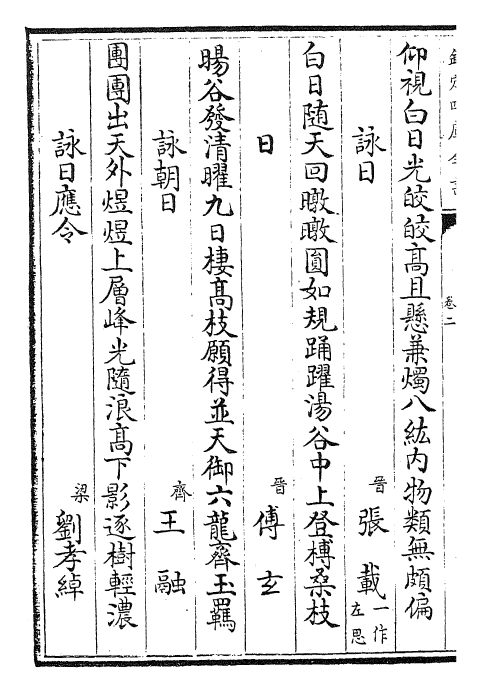 欽定四庫全書
卷二
仰視白日光皎皎髙且懸兼燭八紘内物類無頗偏
詠日 晉 張載 一作左思
白日随天回暾暾圓如規踊躍湯谷中上登榑桑枝
日 晉 傅玄
暘谷發清曜九日棲髙枝願得並天御六龍齊玉羈
詠朝日 齊 王融
團團出天外煜煜上層峰光隨浪髙下影逐樹輕濃
詠日應令 梁 劉孝綽